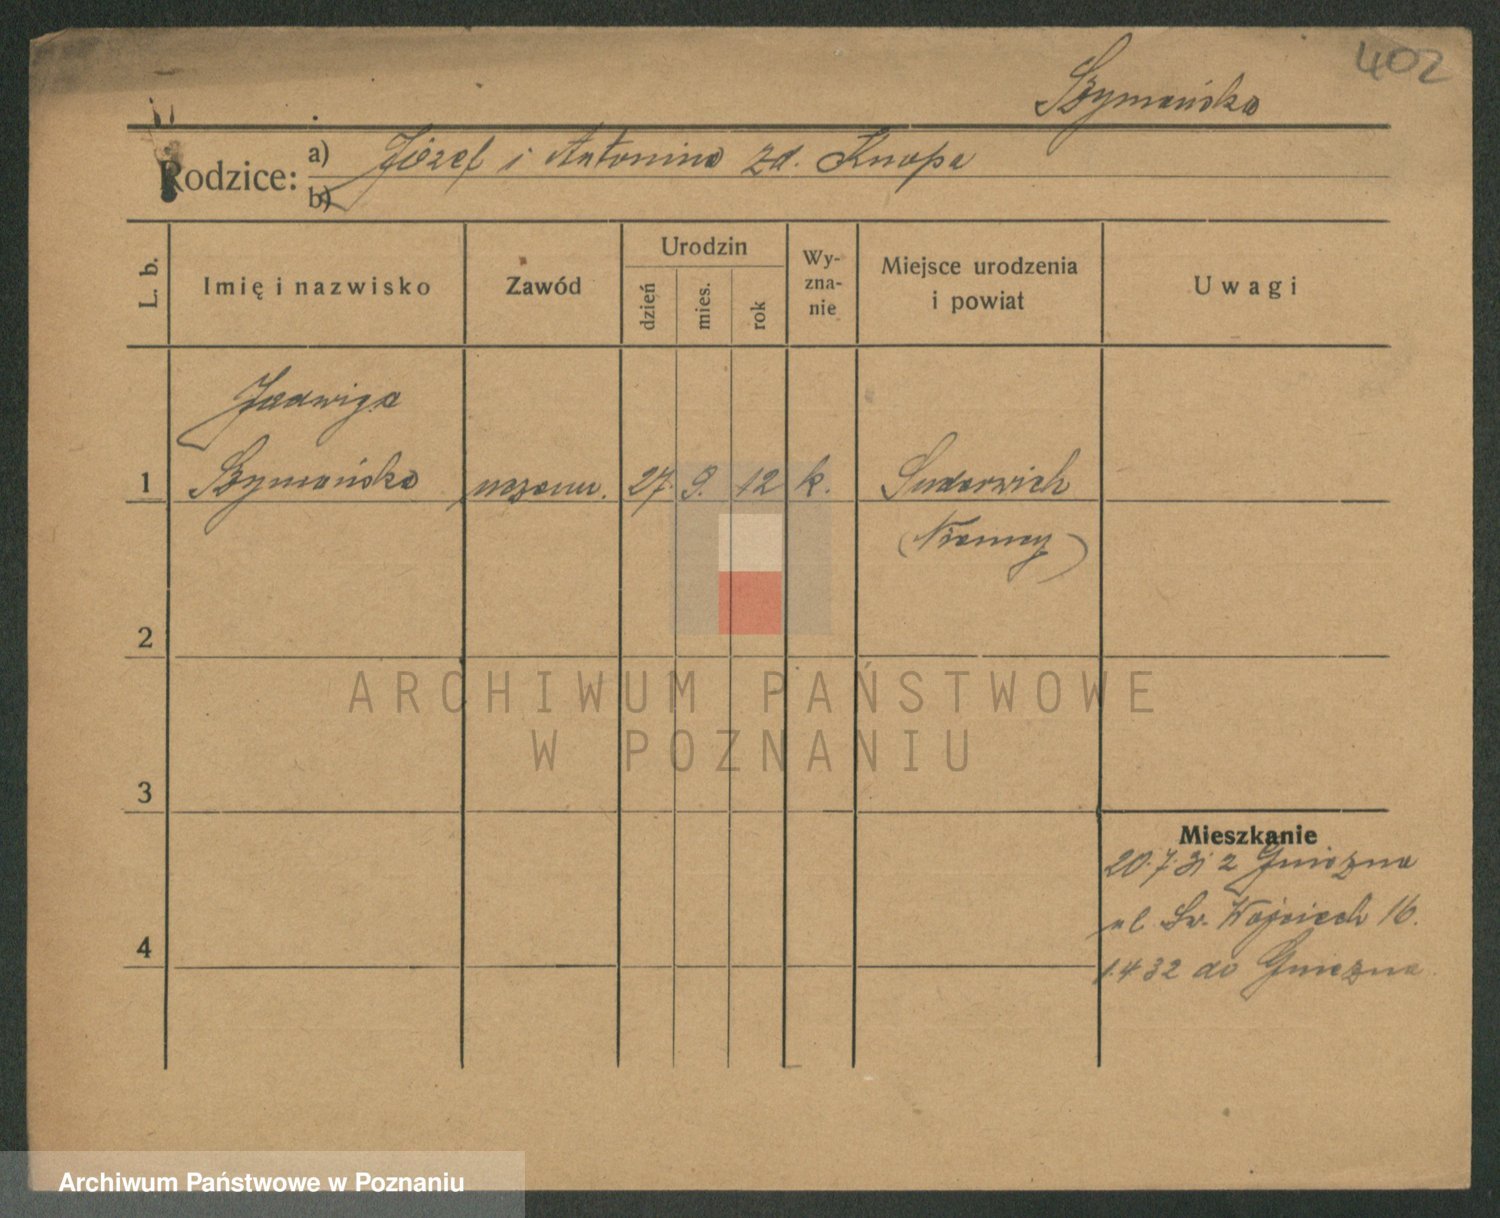 402
Szymańska
Rodzice:
a) Józef i Antonina zd. Knapa
b)
L. b.
Imię i nazwisko
Zawód
Urodzin
dzień
mies.
rok
Wy-
zna-
nie
Miejsce urodzenia
i powiat
Uwagi
Jadwiga
1 Szymańska 27. 9. 12 k. Suderwich
(Niemcy)
2
3
4
Mieszkanie
20.7.31 z Gniezna
ul. Św. Wojciech 16.
1.4 32 do Gniezna
ARCHIWUM PAŃSTWOWE
W POZNANIU
Archiwum Państwowe w Poznaniu